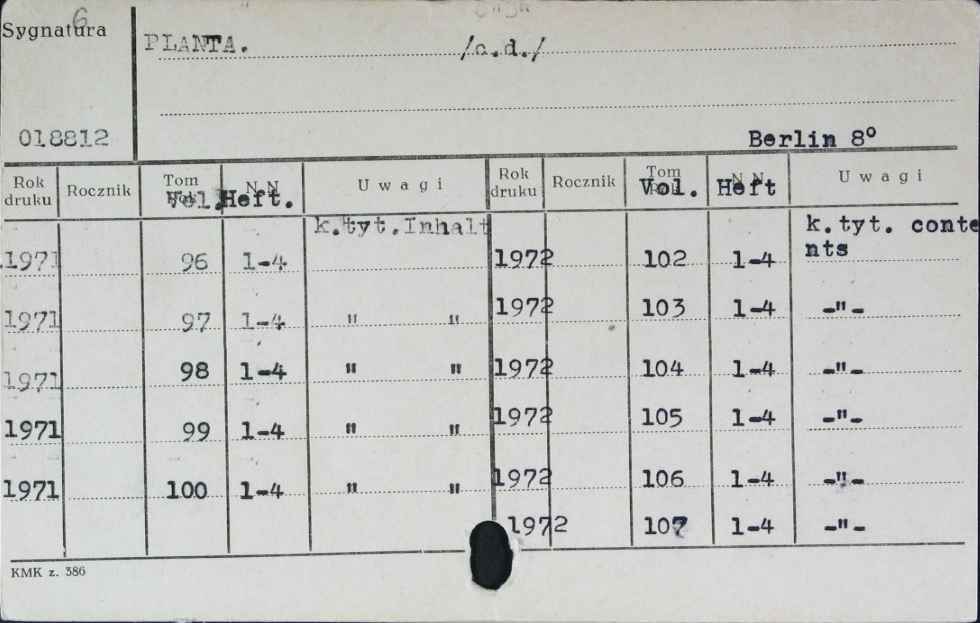 6
Sygnatura
PLANTA. /c.d./
018812
Berlin 8°
Rok druku Rocznik Tom Vol. N.N Heft. Uwagi Rok druku Rocznik Tom Vol. N.N Heft Uwagi
k.tyt.Inhalt k.tyt. conte
nts
1971 96 1-4 1972 102 1-4
1971 97 1-4 " " 1972 103 1-4 -"-
1971 98 1-4 " " 1972 104 1-4 -"-
1971 99 1-4 " " 1972 105 1-4 -"-
1971 100 1-4 " " 1972 106 1-4 -"-
1972 107 1-4 -"-
KMK z. 386